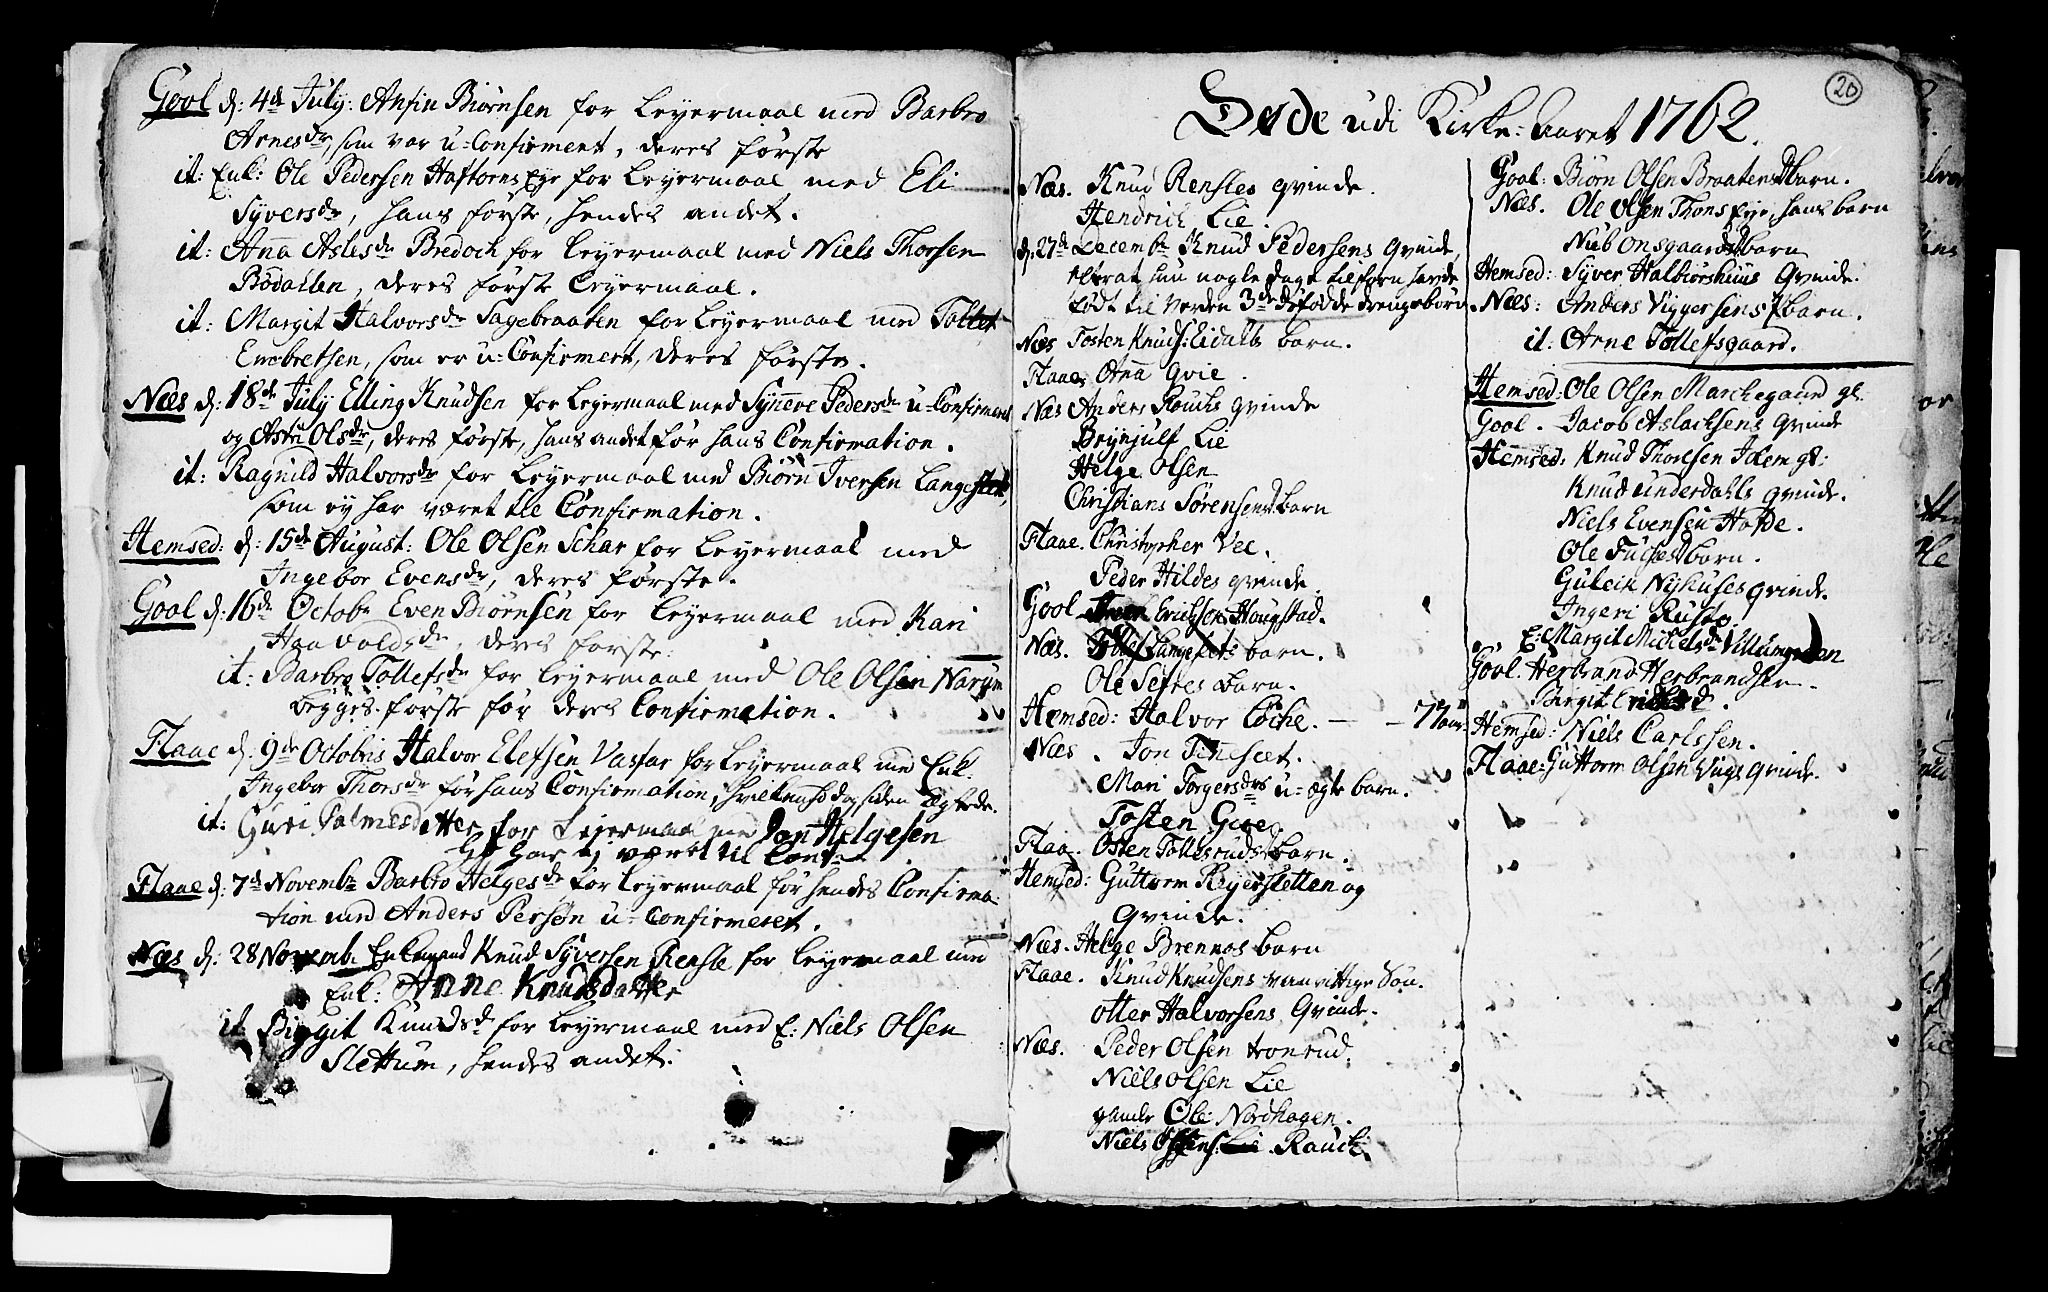 Gool d: 4de July: Anfin Biørnsen for Leyermaal med Barbro
Arnesdr, som var u-Confirmert, deres første
it: Enk: Ole Pedersen Haftorns Eye for Leyermaal med Eli
Syversdr, hans første, hendes andet.
it: Anna Aslesdr Bredoch for Leyermaal med Niels Thorsen
Bødalen, deres første Leyermaal.
it: Margit Halvorsdr Sagebraaten for Leyermaal med Tollef
Embretsen, som er u-Confirmert, deres første.
Næs d: 18de July Elling Knudsen for Leyermaal med Synneve Pedersdr u-Confirmeret
og Astri Olsdr, deres første, hans andet før hans Confirmation.
it: Ragnild Halvorsdr for Leyermaal med Biørn Iversen Langeslet,
som ey har været til Confirmation.
Hemsed: d: 15de August: Ole Olsen Schar for Leyermaal med
Ingebor Evensdr, deres første.
Gool d: 16de Octobr Even Biørnsen for Leyermaal med Kari
Haavoldsdr, deres første:
it: Barbro Tollefsdr for Leyermaal med Ole Olsen Narum
begges første før deres Confirmation.
Flaae d: 9de Octobris Halvor Elefsen Vasfar for Leyermaal med Enk:
Ingebor Thorsdr før hans Confirmation, hvilken hand og siden ægtede.
it: Guri Palmesdatter for Leyermaal med Jon Helgesen
Ey været til Conf
Flaae d: 7de Novembr Barbro Helgesdr for Leyermaal før hendes Confirma
tion med Anders Persøn u-Confirmeret.
Næs d: 28 Novemb: Enkemand Knud Syversen Rensle for Leyermaal med
Enk: Anne Knudsdatter
it Birgit Knudsdr for Leyermaal med E: Niels Olsen
Slettum, hendes andet.
20
Døde udi Kirke-Aaret 1762.
Næs. Knud Rensles qvinde.
Hendrich Lie.
d: 27de Decembr Knud Pedersens Qvinde,
efterat hun nogle dage tilforn hafde
født til Verden 3de døfødde drengebørn
Næs Tosten Knuds: Eidals barn.
Flaae Anna Qvie.
Næs Anders Rouchs qvinde
Brynjulf Lie
Helge Olsen
Christians Sørensens barn
Flaae. Christopher Vee.
Peder Hildes qvinde
Gool Erichsen Haugstad.
Næs. Tollef Langslets barn.
Ole Sefres barn.
Hemsed: Halvor Løche. — — 77 aar
Næs. Jon Tineset.
Mari Torgersdrs u-ægte barn.
Tosten Gree.
Flaa. Østen Tollesruds barn.
Hemsed: Guttorm Reyersletten og
Qvinde.
Næs. Helge Brennas barn
Flaae. Knud Knudsens vanvittige Søn.
otter Halvorsens Qvinde.
Næs. Peder Olsen tronrud.
Niels Olsen Lie
gamle Ole Nordhagen.
Niels Olsens Rauch
Gool: Biørn Olsen Braatens barn.
Næs. Ole Olsen Thons eye, hans barn
Nub Onsgaards barn
Hemsed: Syver Halbiørshuus Qvinde.
Næs: Anders Viggersens barn.
it: Arne Tollefsgaard.
Hemsed: Ole Olsen Marchegaard gl.
Gool. Jacob Aslachsens Qvinde
Hemsed: Knud Thoresen Idem gl:
Knud Underdahls qvinde.
Niels Evensen Hofde.
Ole Fuches barn.
Gulech Nyhuses qvinde.
Ingeri Rusto.
E: Margit Michelsdr Villumgarden
Gool. Herbrand Herbrandsen.
Birgit
Hemsed: Niels Carlssen.
Flaae: Guttorm Olsen Viigs Qvinde.